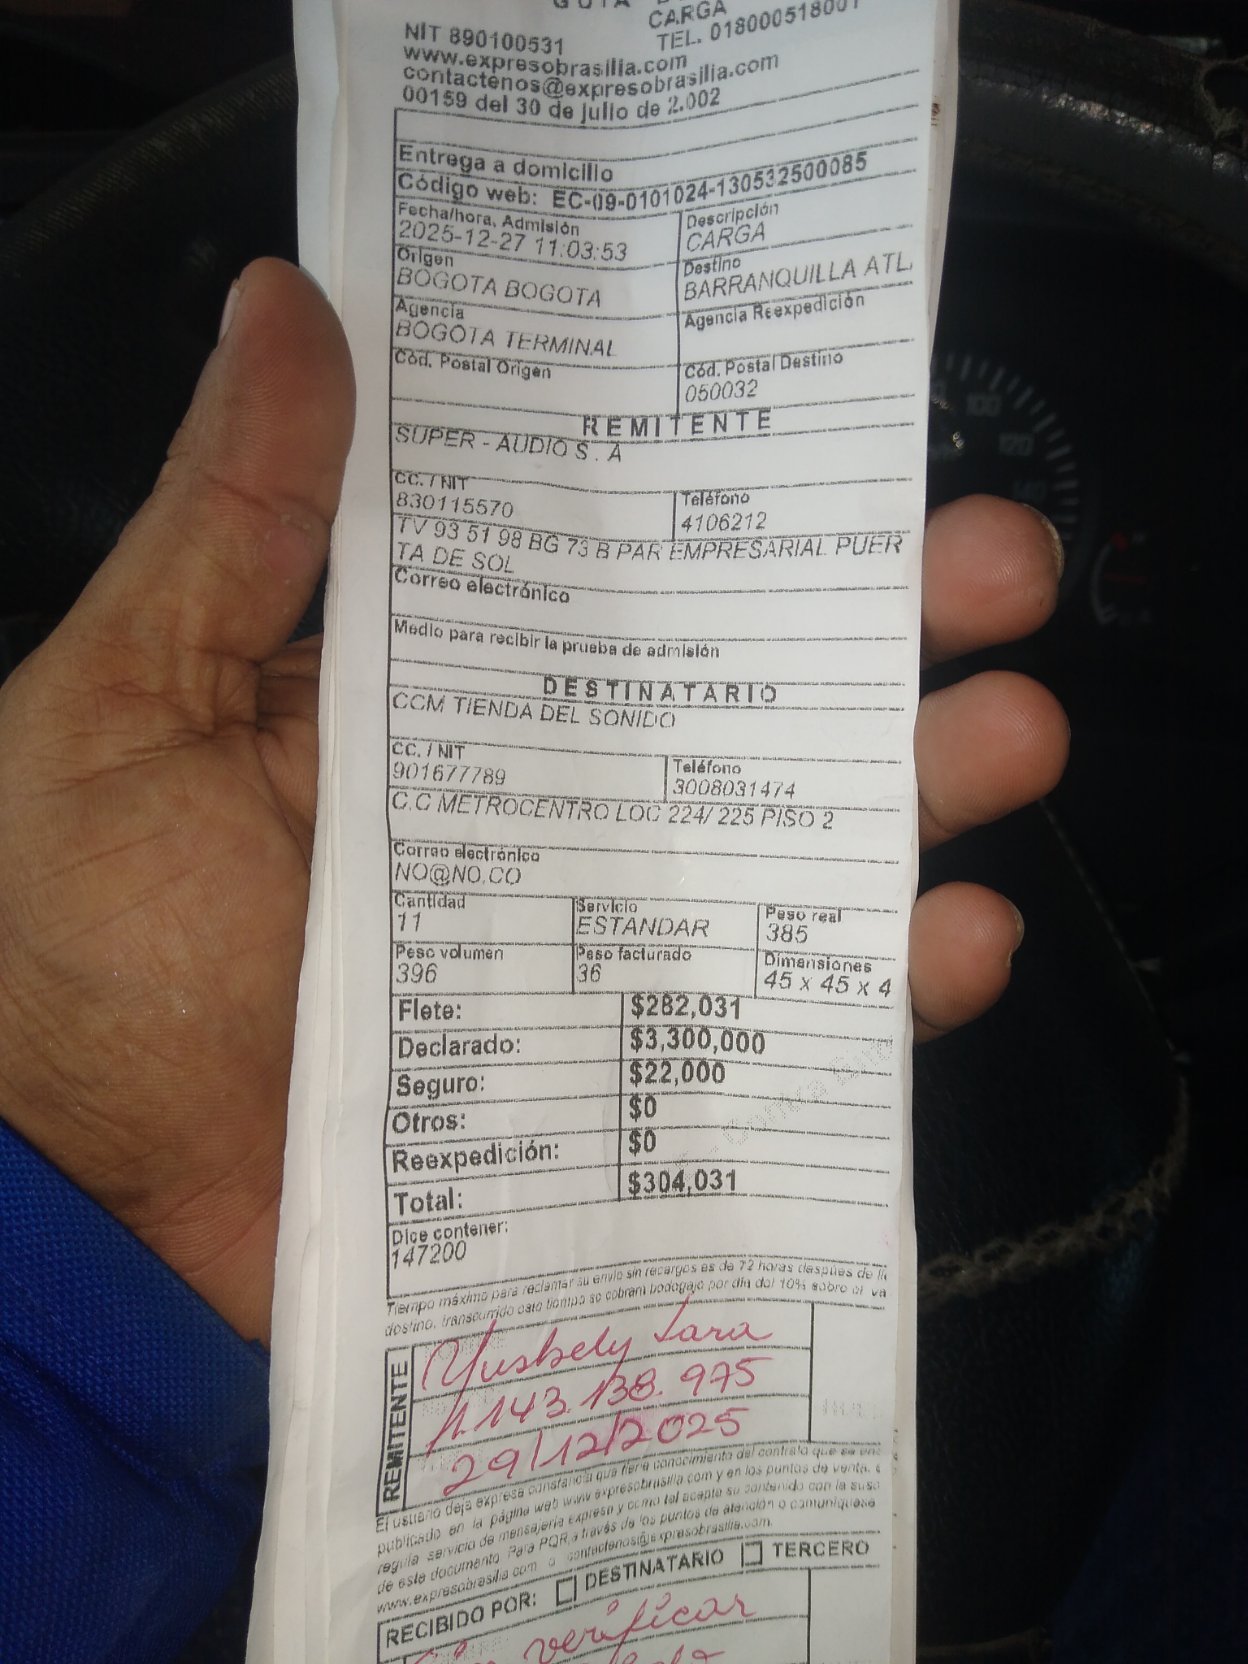 CARGA
NIT 890100531 TEL. 018000518001
www.expresobrasilia.com
contactenos@expresobrasilia.com
00159 del 30 de julio de 2.002
Entrega a domicilio
Código web: EC-09-0101024-130532500085
Fecha/hora. Admisión Descripción
2025-12-27 11:03:53 CARGA
Origen Destino
BOGOTA BOGOTA BARRANQUILLA ATL
Agencia Agencia Reexpedición
BOGOTA TERMINAL
Cód. Postal Origen Cód. Postal Destino
050032
REMITENTE
SUPER - AUDIO S . A
CC. / NIT Teléfono
830115570 4106212
TV 93 51 98 BG 73 B PAR EMPRESARIAL PUER
TA DE SOL
Correo electrónico
Medio para recibir la prueba de admisión
DESTINATARIO
CCM TIENDA DEL SONIDO
CC. / NIT Teléfono
901677789 3008031474
C.C METROCENTRO LOC 224/ 225 PISO 2
Correo electrónico
NO@NO.CO
Cantidad Servicio Peso real
11 ESTANDAR 385
Peso volumen Peso facturado Dimensiones
396 36 45 x 45 x 4
Flete: $282,031
Declarado: $3,300,000
Seguro: $22,000
Otros: $0
Reexpedición: $0
Total: $304,031
Dice contener:
147200
Tiempo máximo para reclamar su envío sin recargos es de 72 horas después de
destino, transcurrido este tiempo se cobrará bodegaje por día del 10% sobre el va
REMITENTE
Yusbely Lara
1.143.138.975
29/12/2025
El usuario deja expresa constancia que tiene conocimiento del contrato que se enc
publicado en la página web www.expresobrasilia.com y en los puntos de venta,
regula servicio de mensajería expresa y como tal acepta su contenido con la susc
de este documento. Para PQR a través de los puntos de atención o comuníquese
www.expresobrasilia.com o contactenos@expresobrasilia.com.
RECIBIDO POR: DESTINATARIO TERCERO
Sin verificar